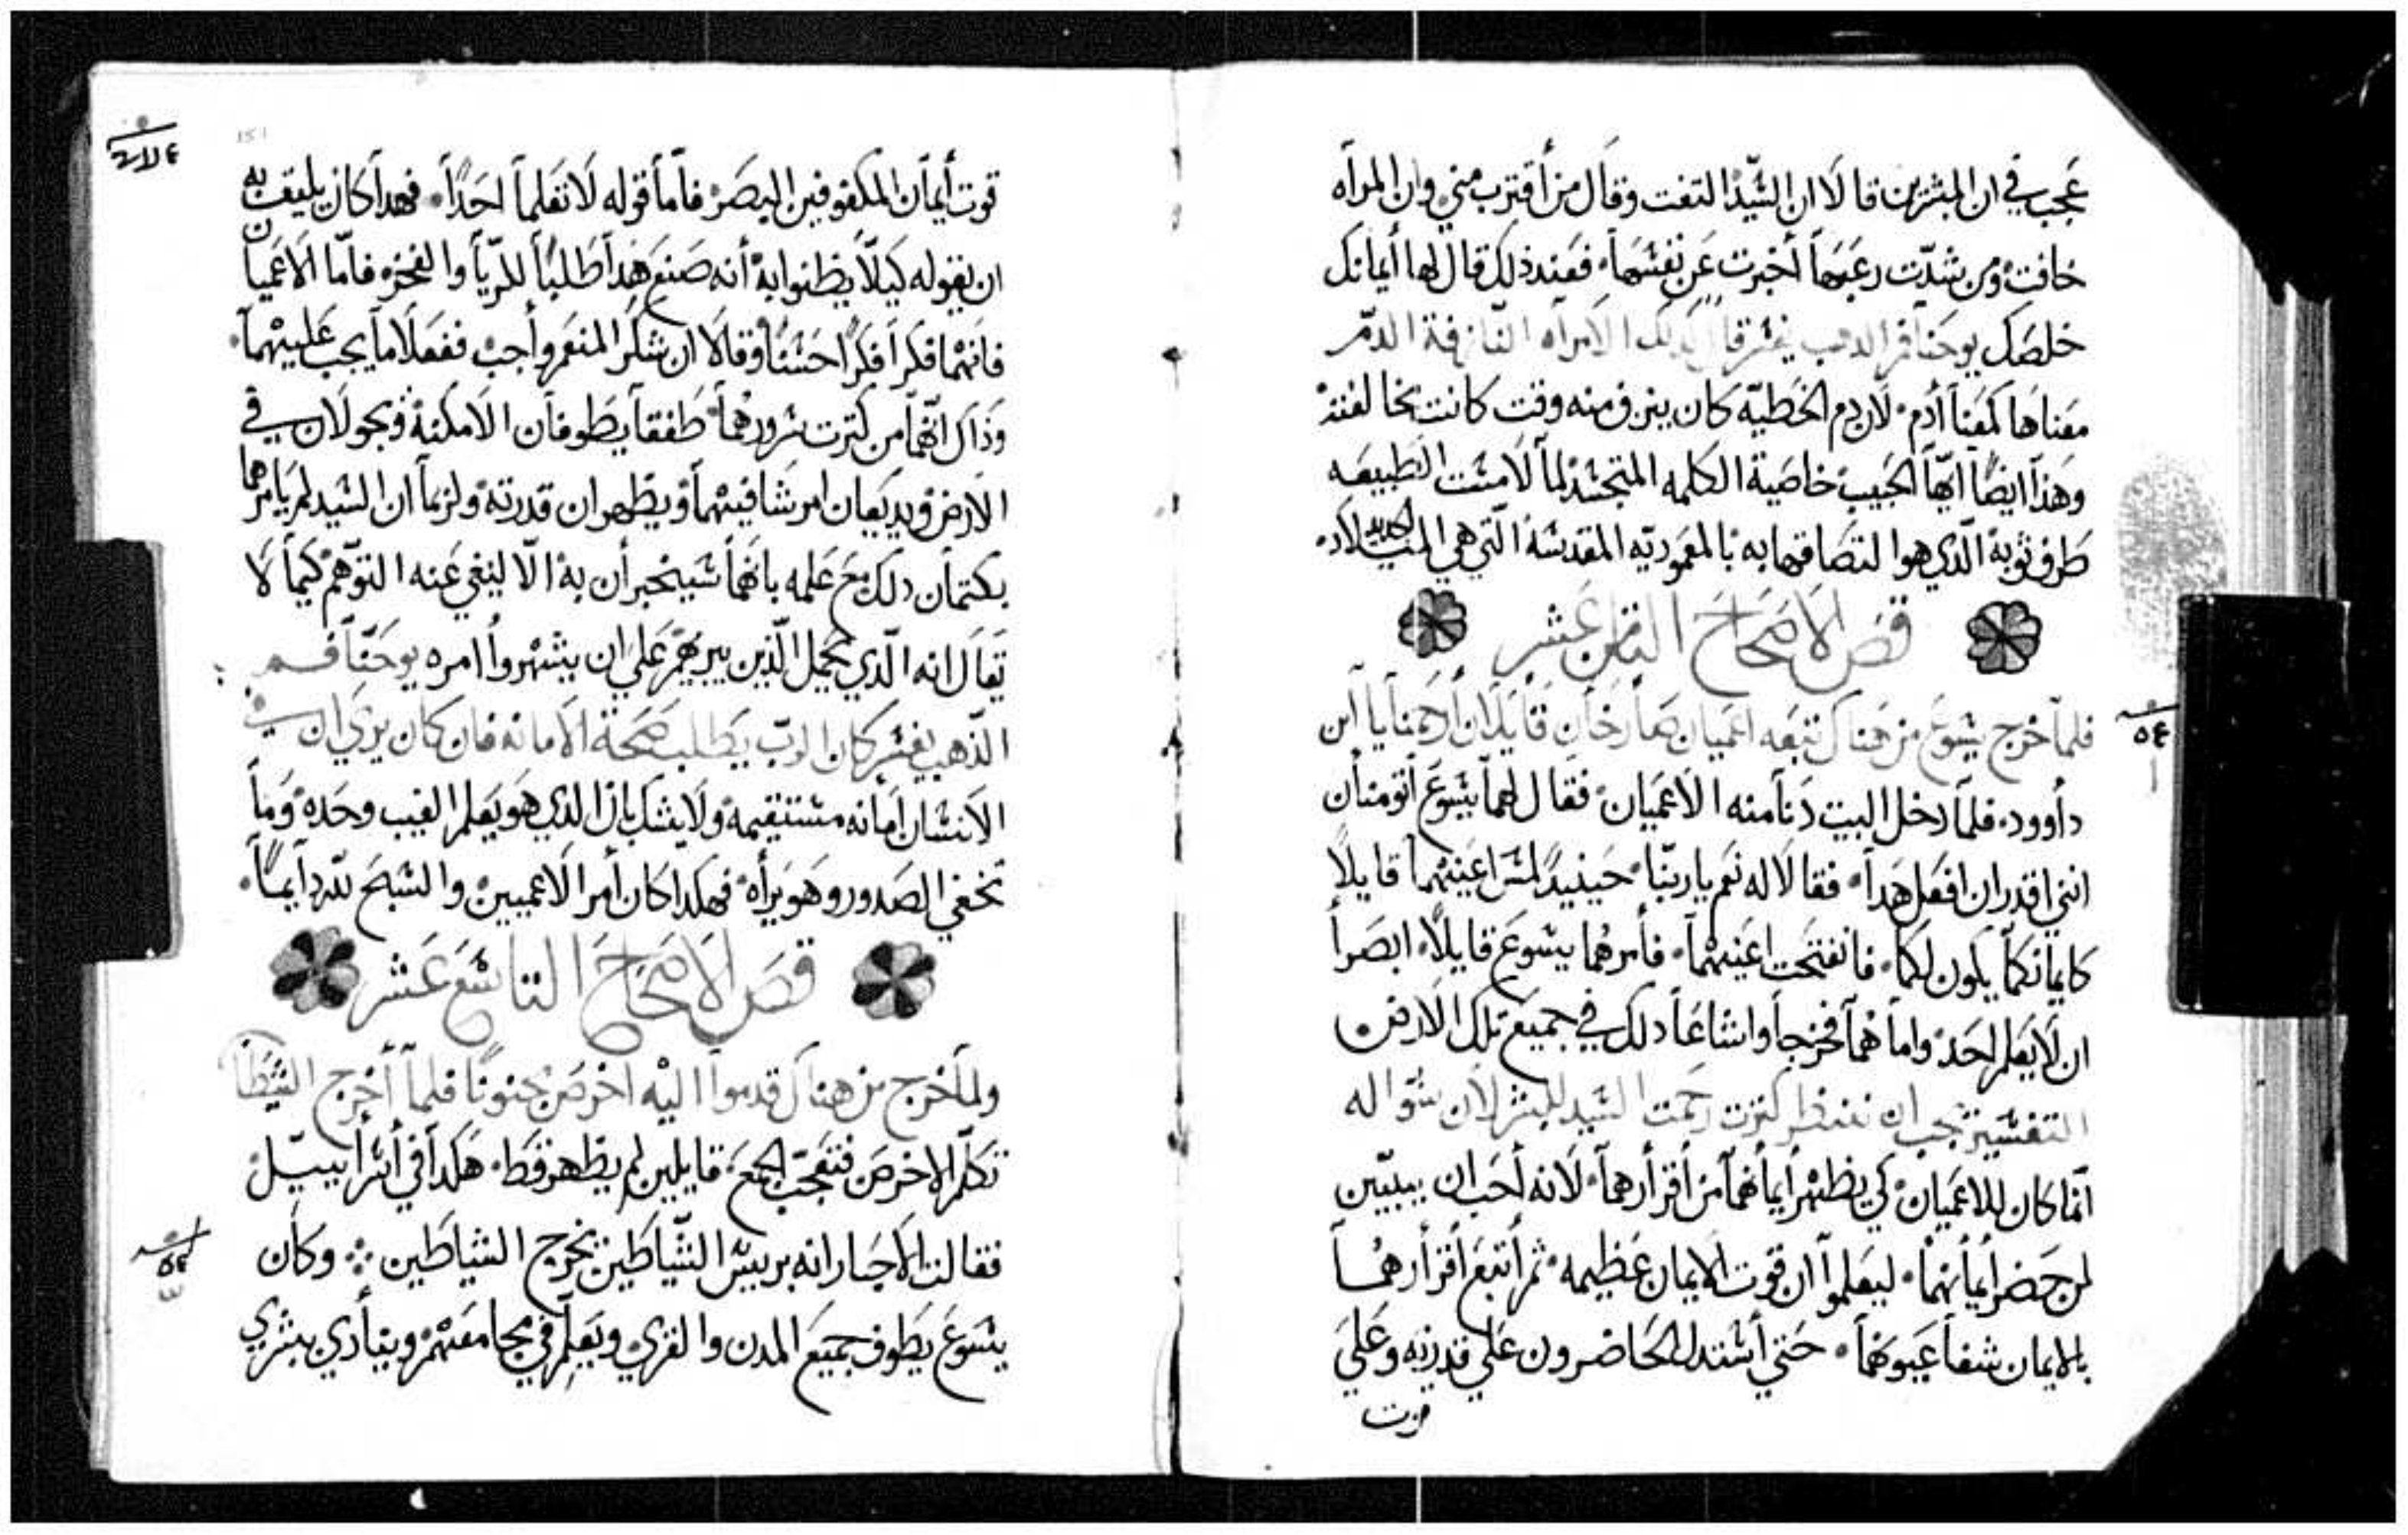 عجب في ان المبشرين قالا ان السّيّد التفت وقال من أقترب مني وان المرآه
خافت ومن شدّت رعبها أخبرت عن نفسها فعند ذلك قال لها أيمانك
خلصك يوحنا فم الدهب يفسّر قال لذلك الامرآه النازفة الدمّ
معناها كمعنا أدم لان دم الخطيّه كان ينزف منه وقت كانت تخالفته
وهذا ايضًا ايّها الحبيب خاصية الكلمه المتجسّد لما لامسَت الطبيعه
طرف ثوبه الّذي هو التصاقها به بالمعموديّه المقدسَة الّتي هي الميلاد الجديد
قصَ الاصحَاحَ الثامن عَشر
فلمّا خرج يسُوعَ من هناك تبعَه اعميان صَارخان قايلان أرحمنا يا أبن
دأوود فلما دخل البيت دَنا منه الاعميان فقال لهما يسُوعَ أتومنان
انني اقدر ان افعَل هَدا فقالا له نعَم يا ربنّا حَينيدٍ لمسَ اعَينهمَا قايلاً
كايمَانكمَا يكون لكمَا فانفتحَت اعَينهمَا فأمرهُما يسُوعَ قايلاً ابصَرا
ان لا يَعلم احَد واما همَا فخرجا واشاعَا دلك في جميعَ تلك الارض
التفسَير يجب ان ننظر كترت رحمت السَيد للبشر لان سُواله
انما كان للاعَميان كي يظهر أيمأنهمَا من أقرارهمَا لانه أحَب ان يبيّن
لمن حَضر أيمأنهمَا ليعَلموا ان قوت الايمان عَظيمه ثم أتبعَ أقرارهمَا
بالايمان شفا عَيونهمَا حَتي أستدل الحَاضرون عَلي قدرته وعَلي
قوت
١٥١
قوت أيمأن المكفوفين البصَر فاما قوله لا تعَلما احَدًا فهدا كان يليق به
ان يقوله كيلا يظنوا به أنه صنعَ هَدا طلبًا للريا والفخر فامّا الاعَميان
فانهمَا فكرا فكرًا حسَنًا وقالا ان شكر المنعَم وأجب ففعَلا ما يجب عَليهمَا
وذاك انّهمَا من كترت سرورهُمَا طفقا يَطوفان الامكنة ويجولان في
الارض ويديعَان امر شافيهمَا ويظهران قدرته ولربما ان السَيد لم يأمرهما
بكتمان دلك معَ عَلمه بانهمَا سَيخبران به الّا لينفي عَنه التوهّم كيما لا
يُقال انه الّذي يحمل الّذين يبريهُم عَلي ان يشهروا امره يوحَنّا فم
الذهب يفسّر كان الربّ يَطلب صَحة الامانه فان كان يري ان
الانسَان امانه مستقيمه ولا يشك بان الذي هَو يعَلم الغيب وحَده ومَا
تخفي الصَدور وهَو يرأه فهكدا كان أمر الاعميين والسَبحَ للّه دايمًا
قصَ الاصَحَاحَ التاسَعَ عَشر
ولما خرج من هناك قدموا اليه اخرصَ مجنونًا فلما أخرج الشيطان
تكلّم الاخرصَ فتعَجّب الجمعَ قايلين لم يظهر قط هَكدا في أسَرأييل
فقالت الاحبار انه بريسَ الشّياطين يخرج الشياطين ܀ وكأن
يسُوعَ يَطوف جميعَ المدن والقري ويَعلم في مجامعَهم وينادي ببشري